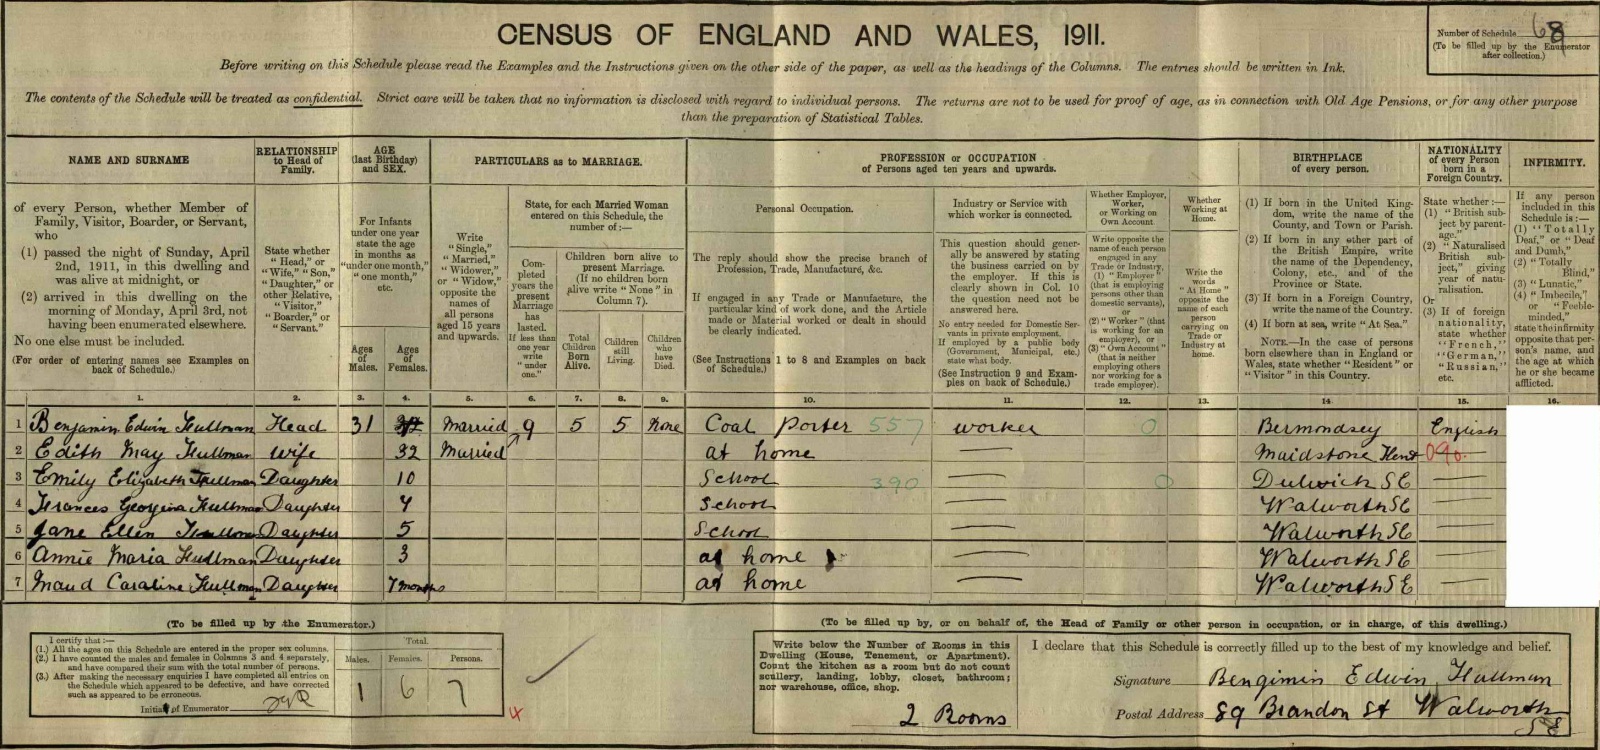 CENSUS OF ENGLAND AND WALES, 1911.
Number of Schedule 68
(To be filled up by the Enumerator after collection.)
Before writing on this Schedule please read the Examples and the Instructions given on the other side of the paper, as well as the headings of the Columns. The entries should be written in Ink.
The contents of the Schedule will be treated as confidential. Strict care will be taken that no information is disclosed with regard to individual persons. The returns are not to be used for proof of age, as in connection with Old Age Pensions, or for any other purpose
than the preparation of Statistical Tables.
NAME AND SURNAME
of every Person, whether Member of
Family, Visitor, Boarder, or Servant,
who
(1) passed the night of Sunday, April
2nd, 1911, in this dwelling and
was alive at midnight, or
(2) arrived in this dwelling on the
morning of Monday, April 3rd, not
having been enumerated elsewhere.
No one else must be included.
(For order of entering names see Examples on
back of Schedule.)
RELATIONSHIP
to Head of
Family.
State whether
"Head," or
"Wife," "Son,"
"Daughter," or
other Relative,
"Visitor,"
"Boarder," or
"Servant."
AGE
(last Birthday)
and SEX.
For Infants
under one year
state the age
in months as
"under one month,"
"one month,"
etc.
Ages
of
Males.
Ages
of
Females.
PARTICULARS as to MARRIAGE.
Write
"Single,"
"Married,"
"Widower,"
or "Widow,"
opposite the
names of
all persons
aged 15 years
and upwards.
State, for each Married Woman
entered on this Schedule, the
number of:—
Com-
pleted
years the
present
Marriage
has
lasted.
If less than
one year
write
"under
one."
Children born alive to
present Marriage.
(If no children born
alive write "None" in
Column 7).
Total
Children
Born
Alive.
Children
still
Living.
Children
who
have
Died.
PROFESSION or OCCUPATION
of Persons aged ten years and upwards.
Personal Occupation.
The reply should show the precise branch of
Profession, Trade, Manufacture, &c.
If engaged in any Trade or Manufacture, the
particular kind of work done, and the Article
made or Material worked or dealt in should
be clearly indicated.
(See Instructions 1 to 8 and Examples on back
of Schedule.)
Industry or Service with
which worker is connected.
This question should gener-
ally be answered by stating
the business carried on by
the employer. If this is
clearly shown in Col. 10
the question need not be
answered here.
No entry needed for Domestic Ser-
vants in private employment.
If employed by a public body
(Government, Municipal, etc.)
state what body.
(See Instruction 9 and Exam-
ples on back of Schedule.)
Whether Employer,
Worker,
or Working on
Own Account
Write opposite the
name of each person
engaged in any
Trade or Industry,
(1) "Employer"
(that is employing
persons other than
domestic servants),
or
(2) "Worker" (that
is working for an
employer), or
(3) "Own Account"
(that is neither
employing others
nor working for a
trade employer).
Whether
Working at
Home.
Write the
words
"At Home"
opposite the
name of each
person
carrying on
Trade or
Industry at
home.
BIRTHPLACE
of every person.
(1) If born in the United King-
dom, write the name of the
County, and Town or Parish.
(2) If born in any other part of
the British Empire, write
the name of the Dependency,
Colony, etc., and of the
Province or State.
(3) If born in a Foreign Country,
write the name of the Country.
(4) If born at sea, write "At Sea."
NOTE.—In the case of persons
born elsewhere than in England or
Wales, state whether "Resident" or
"Visitor" in this Country.
NATIONALITY
of every Person
born in a
Foreign Country.
State whether:—
(1) "British sub-
ject by parent-
age."
(2) "Naturalised
British sub-
ject," giving
year of natu-
ralisation.
Or
(3) If of foreign
nationality,
state whether
"French,"
"German,"
"Russian,"
etc.
INFIRMITY.
If any person
included in this
Schedule is:—
(1) "Totally
Deaf," or "Deaf
and Dumb,"
(2) "Totally
Blind,"
(3) "Lunatic,"
(4) "Imbecile,"
or "Feeble-
minded,"
state the infirmity
opposite that per-
son's name, and
the age at which
he or she became
afflicted.
1. 2. 3. 4. 5. 6. 7. 8. 9. 10. 11. 12. 13. 14 15. 16.
1 Benjamin Edwin Hullman Head 31 Married 9 5 5 None Coal Porter 557 worker 0 Bermondsey English
2 Edith May Hullman wife 32 Married at home — Maidstone Kent 090. —
3 Emily Elizabeth Hullman Daughter 10 School 390 — 0 Dulwich SE —
4 Frances Georgina Hullman Daughter 7 School — Walworth SE —
5 Jane Ellen Hullman Daughter 5 School — Walworth SE —
6 Annie Maria Hullman Daughter 3 at home — Walworth SE —
7 Maud Caraline Hullman Daughter 7 months at home — Walworth SE —
(To be filled up by the Enumerator.)
I certify that:—
(1.) All the ages on this Schedule are entered in the proper sex columns.
(2.) I have counted the males and females in Columns 3 and 4 separately,
and have compared their sum with the total number of persons.
(3.) After making the necessary enquiries I have completed all entries on
the Schedule which appeared to be defective, and have corrected
such as appeared to be erroneous.
Initials of Enumerator
Total.
Males. Females. Persons.
1 6 7
4
(To be filled up by, or on behalf of, the Head of Family or other person in occupation, or in charge, of this dwelling.)
Write below the Number of Rooms in this
Dwelling (House, Tenement, or Apartment).
Count the kitchen as a room but do not count
scullery, landing, lobby, closet, bathroom;
nor warehouse, office, shop.
2 Rooms
I declare that this Schedule is correctly filled up to the best of my knowledge and belief.
Signature Bengimin Edwin Hullman
Postal Address 89 Brandon St Walworth
SE